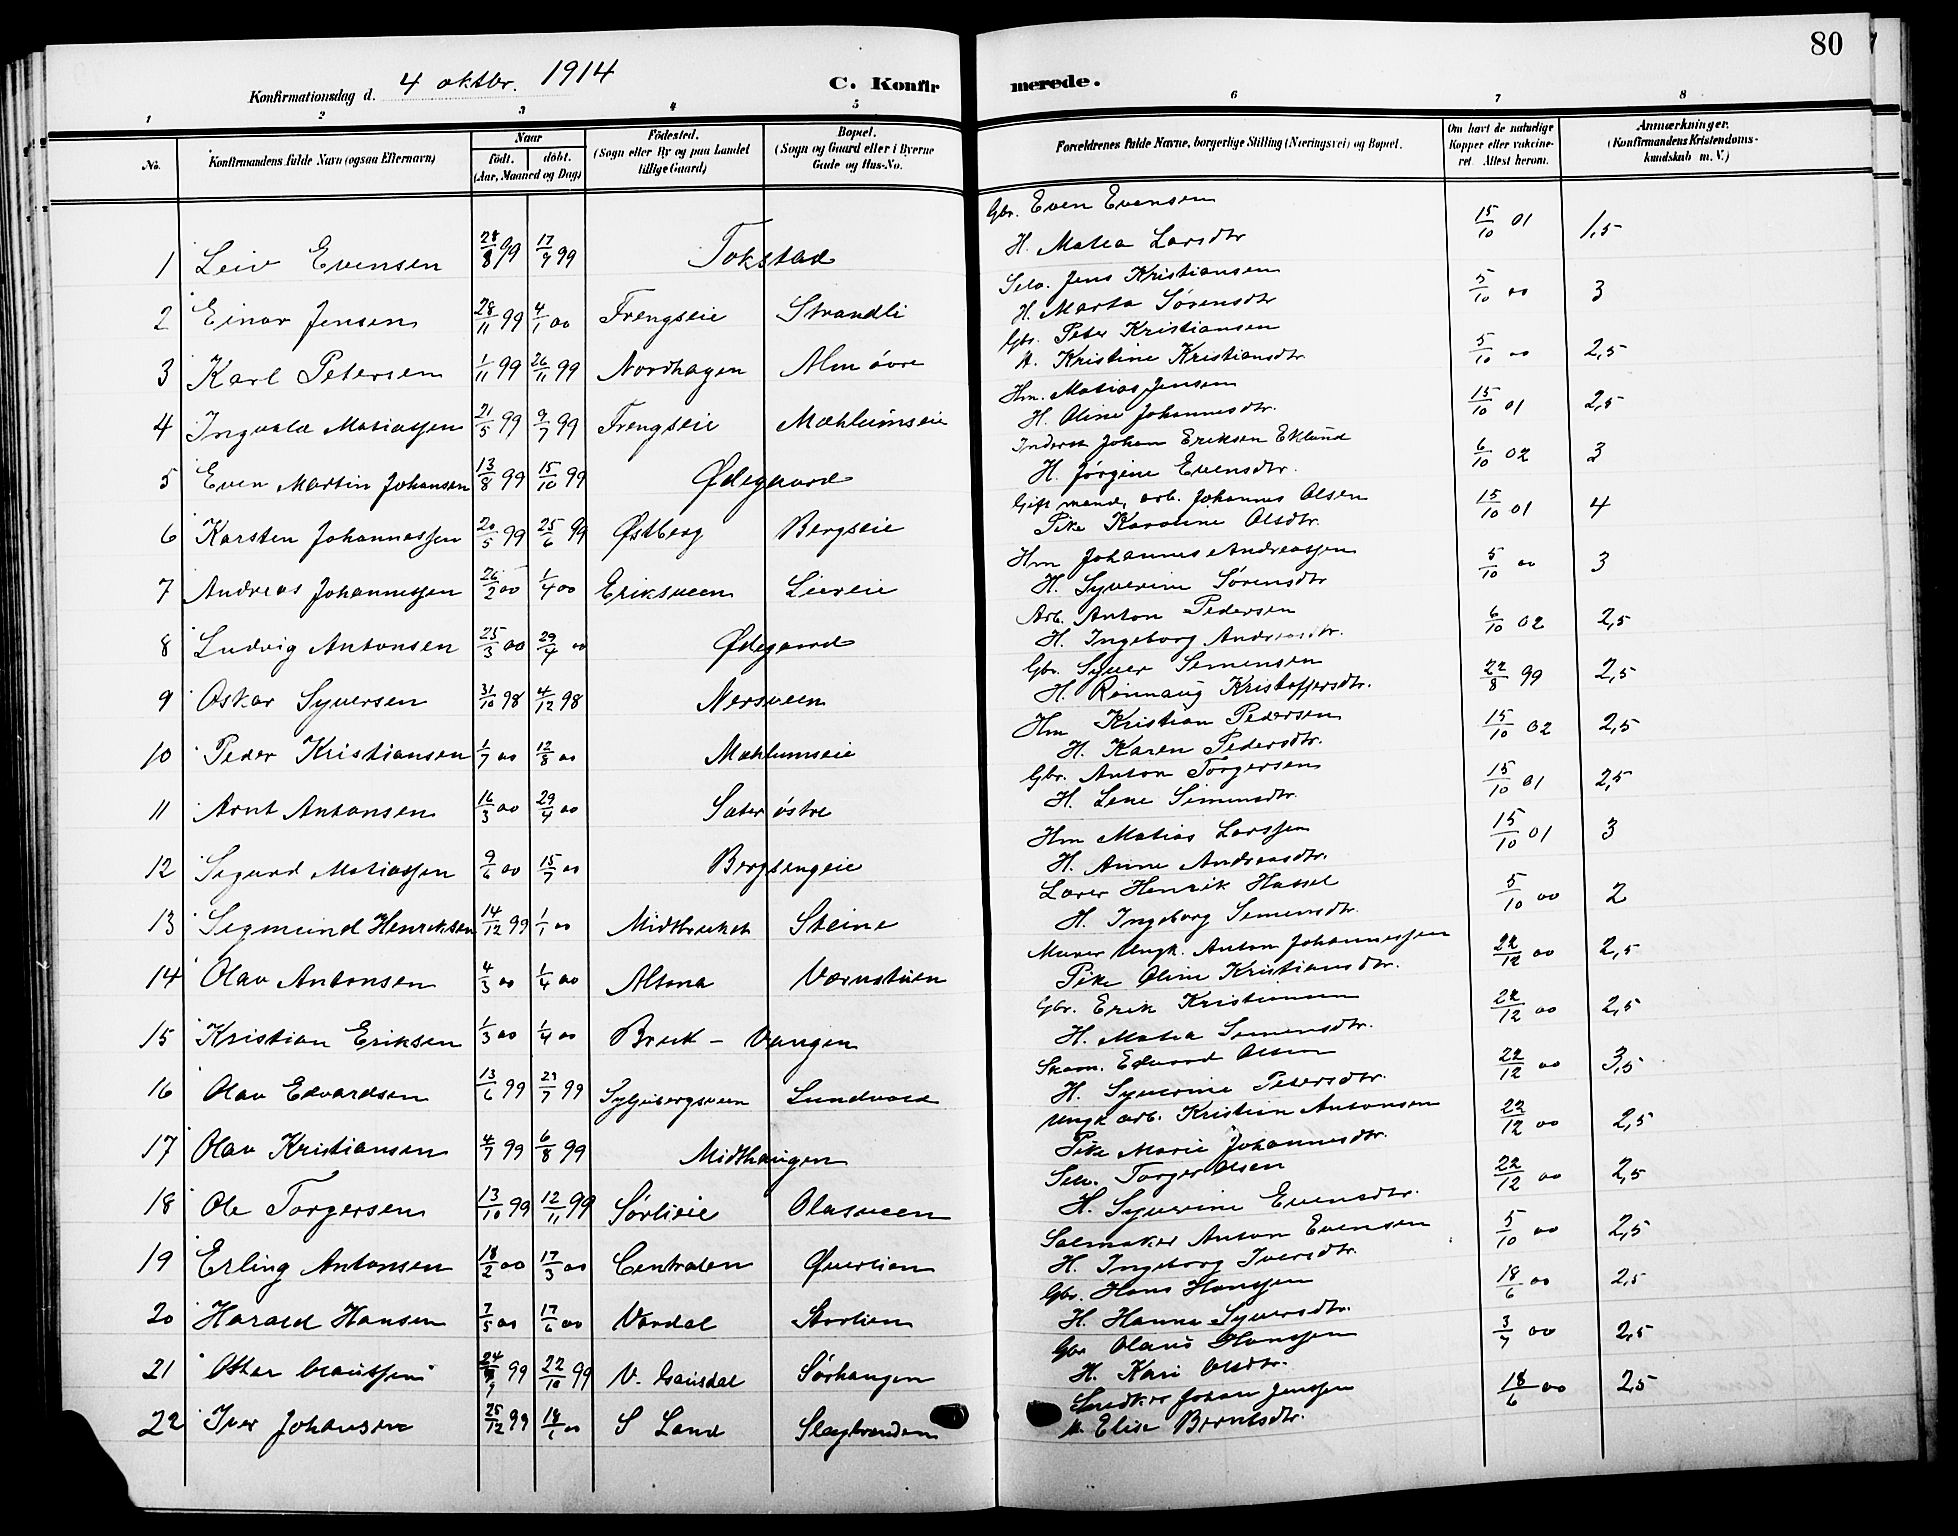 80
Konfirmationsdag d. 4 oktbr. 1914
C. Konfirmerede.
1 2 3 4 5 6 7 8
No. Konfirmandens fulde Navn (ogsaa Efternavn) Naar födt. döbt. (Aar, Maaned og Dag) Födested. (Sogn eller By og paa Landet tillige Gaard) Bopæl. (Sogn og Gaard eller i Byerne Gade og Hus-No. Forældrenes fulde Navne, borgerlige Stilling (Næringsvei) og Bopæl. Om havt de naturlige Kopper eller vaccineret. Attest herom. Anmærkninger. (Konfirmandens Kristendomskundskab m. V.)
Gbr. Even Evensen
1 Leiv Evensen 28/8 99 17/9 99 Tokstad H. Matea Larsdtr 15/10 01 1,5
Selv. Jens Kristiansen
2 Einar Jensen 28/11 99 4/1 00 Frengseie Strandli H. Marta Sørensdtr 5/10 00 3
Gbr. Peter Kristiansen
3 Karl Petersen 1/11 99 26/11 99 Nordhagen Alm övre H. Kristine Kristiansdtr 5/10 00 2,5
Hm. Matias Jensen
4 Ingvald Matiassen 21/5 99 9/7 99 Frengseie Mæhlumseie H. Oline Johannesdtr. 15/10 01 2,5
Inderst Johan Eriksen Eklund
5 Even Martin Johansen 13/8 99 15/10 99 Ødegaard H. Jörgine Evensdtr. 6/10 02 3
Gift mand, arb. Johannes Olsen
6 Karsten Johannessen 20/5 99 25/6 99 Østberg Bergseie Pike Karoline Olsdtr. 15/10 01 4
Hm Johannes Andreassen
7 Andreas Johannessen 26/2 00 1/4 00 Eriksveen Liereie H. Syverine Sörensdtr 5/10 00 3
Arb. Anton Pedersen
8 Ludvig Antonsen 25/3 00 29/4 00 Ødegaard H. Ingeborg Andreasdtr. 6/10 02 2,5
Gbr. Syver Simensen
9 Oskar Syversen 31/10 98 4/12 98 Nersveen H. Rönnaug Kristoffersdtr. 22/8 99 2,5
Hm Kristian Pedersen
10 Peder Kristiansen 1/7 00 12/8 00 Mæhlumseie H. Karen Pedersdtr. 15/10 02 2,5
Gbr. Anton Torgersen
11 Arnt Antonsen 16/3 00 29/4 00 Sæter östre H. Lene Simensdtr. 15/10 01 2,5
Hm Matias Larssen
12 Sigurd Matiassen 9/6 00 15/7 00 Bergsengeie H. Anne Andreasdtr. 15/10 01 3
Lærer Henrik Hassel
13 Sigmund Henriksen 14/12 99 1/1 00 Midtbruket Steine H. Ingeborg Simensdtr. 5/10 00 2
Murer Ungk. Anton Johannessen
14 Olav Antonsen 4/3 00 1/4 00 AltonaVærnstuen Pike Oline Kristiansdtr. 22/12 00 2,5
Gbr. Erik Kristiansen
15 Kristian Eriksen 1/3 00 1/4 00 Bruk - Vangen H. Matea Simensdtr. 22/12 00 2,5
Skom. Edvard Olsen
16 Olav Edvardsen 13/6 99 29/7 99 Syljubergsveen Lundvold H. Syverine Petersdtr. 22/12 00 3,5
Ungk arb. Kristian Antonsen
17 Olav Kristiansen 4/7 99 6/8 99 Midthaugen Pike Marie Johannesdtr. 22/12 00 2,5
Selv. Torger Olsen
18 Ole Torgersen 13/10 99 12/11 99 Sörlieie Olasveen H. Syverine Evensdtr. 22/12 00 2,5
Salmaker Anton Evensen
19 Erling Antonsen 18/2 00 17/3 00 Centralen Øverlien H. Ingeborg Iversdtr. 5/10 00 2,5
Gbr. Hans Hanssen
20 Harald Hansen 7/5 00 17/6 00 Vardal Storlien H. Hanna Syversdtr. 18/6 00 2,5
Gbr Olaus Hanssen
21 Ottar Olaussen 24/9 99 22/10 99 V. Gausdal Sörhaugen H. Kari Olsdtr. 3/7 00 2,5
Snedker Johan Jenssen
22 Iver Johansen 25/12 99 18/1 00 S Land Slaybrenden H. Elise Berntsdtr. 18/6 00 2,5